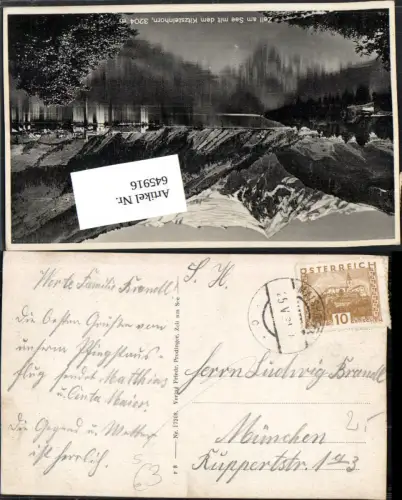 Zell am See mit dem Kitzsteinhorn, 3204 m
Artikel Nr.
645916
Werte Familie Brandl!
Die besten Grüße von
unserm Pfingstaus-
flug sendet Matthias
u. Centa Maier.
Die Gegend u. Wetter
ist herrlich.
Nr. 17208. Verlag Frieder. Haidinger, Zell am See
S. H.
ÖSTERREICH
10
Herrn Ludwig Brandl
München
Ruppertstr. 1
2.-